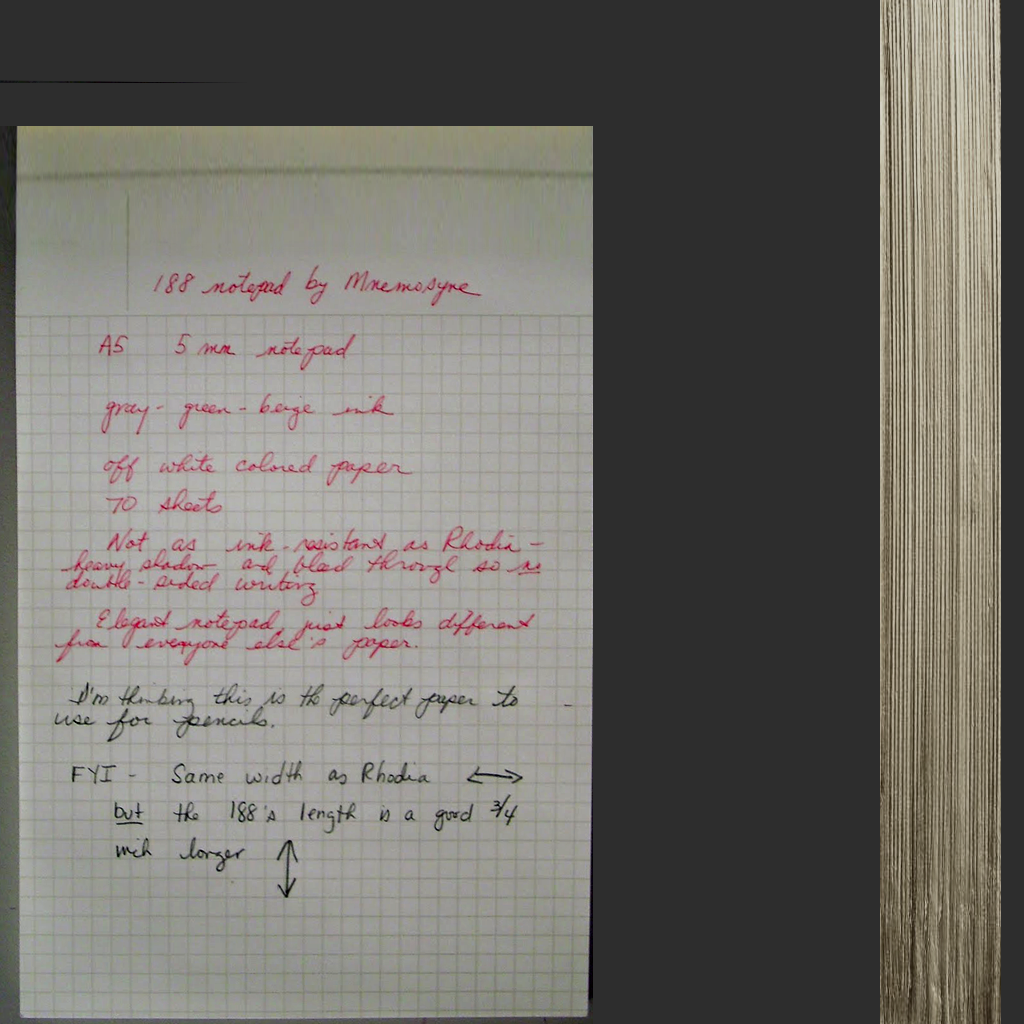 188 notepad by Mnemosyne
A5 5 mm notepad
gray-green-beige ink
off white colored paper
70 sheets
Not as ink-resistant as Rhodia -
heavy shadow and bleed through so no
double-sided writing
Elegant notepad, just looks different
from everyone else's paper.
I'm thinking this is the perfect paper to
use for pencils.
FYI - Same width as Rhodia ↔
but the 188's length is a good 3/4
inch longer ↕